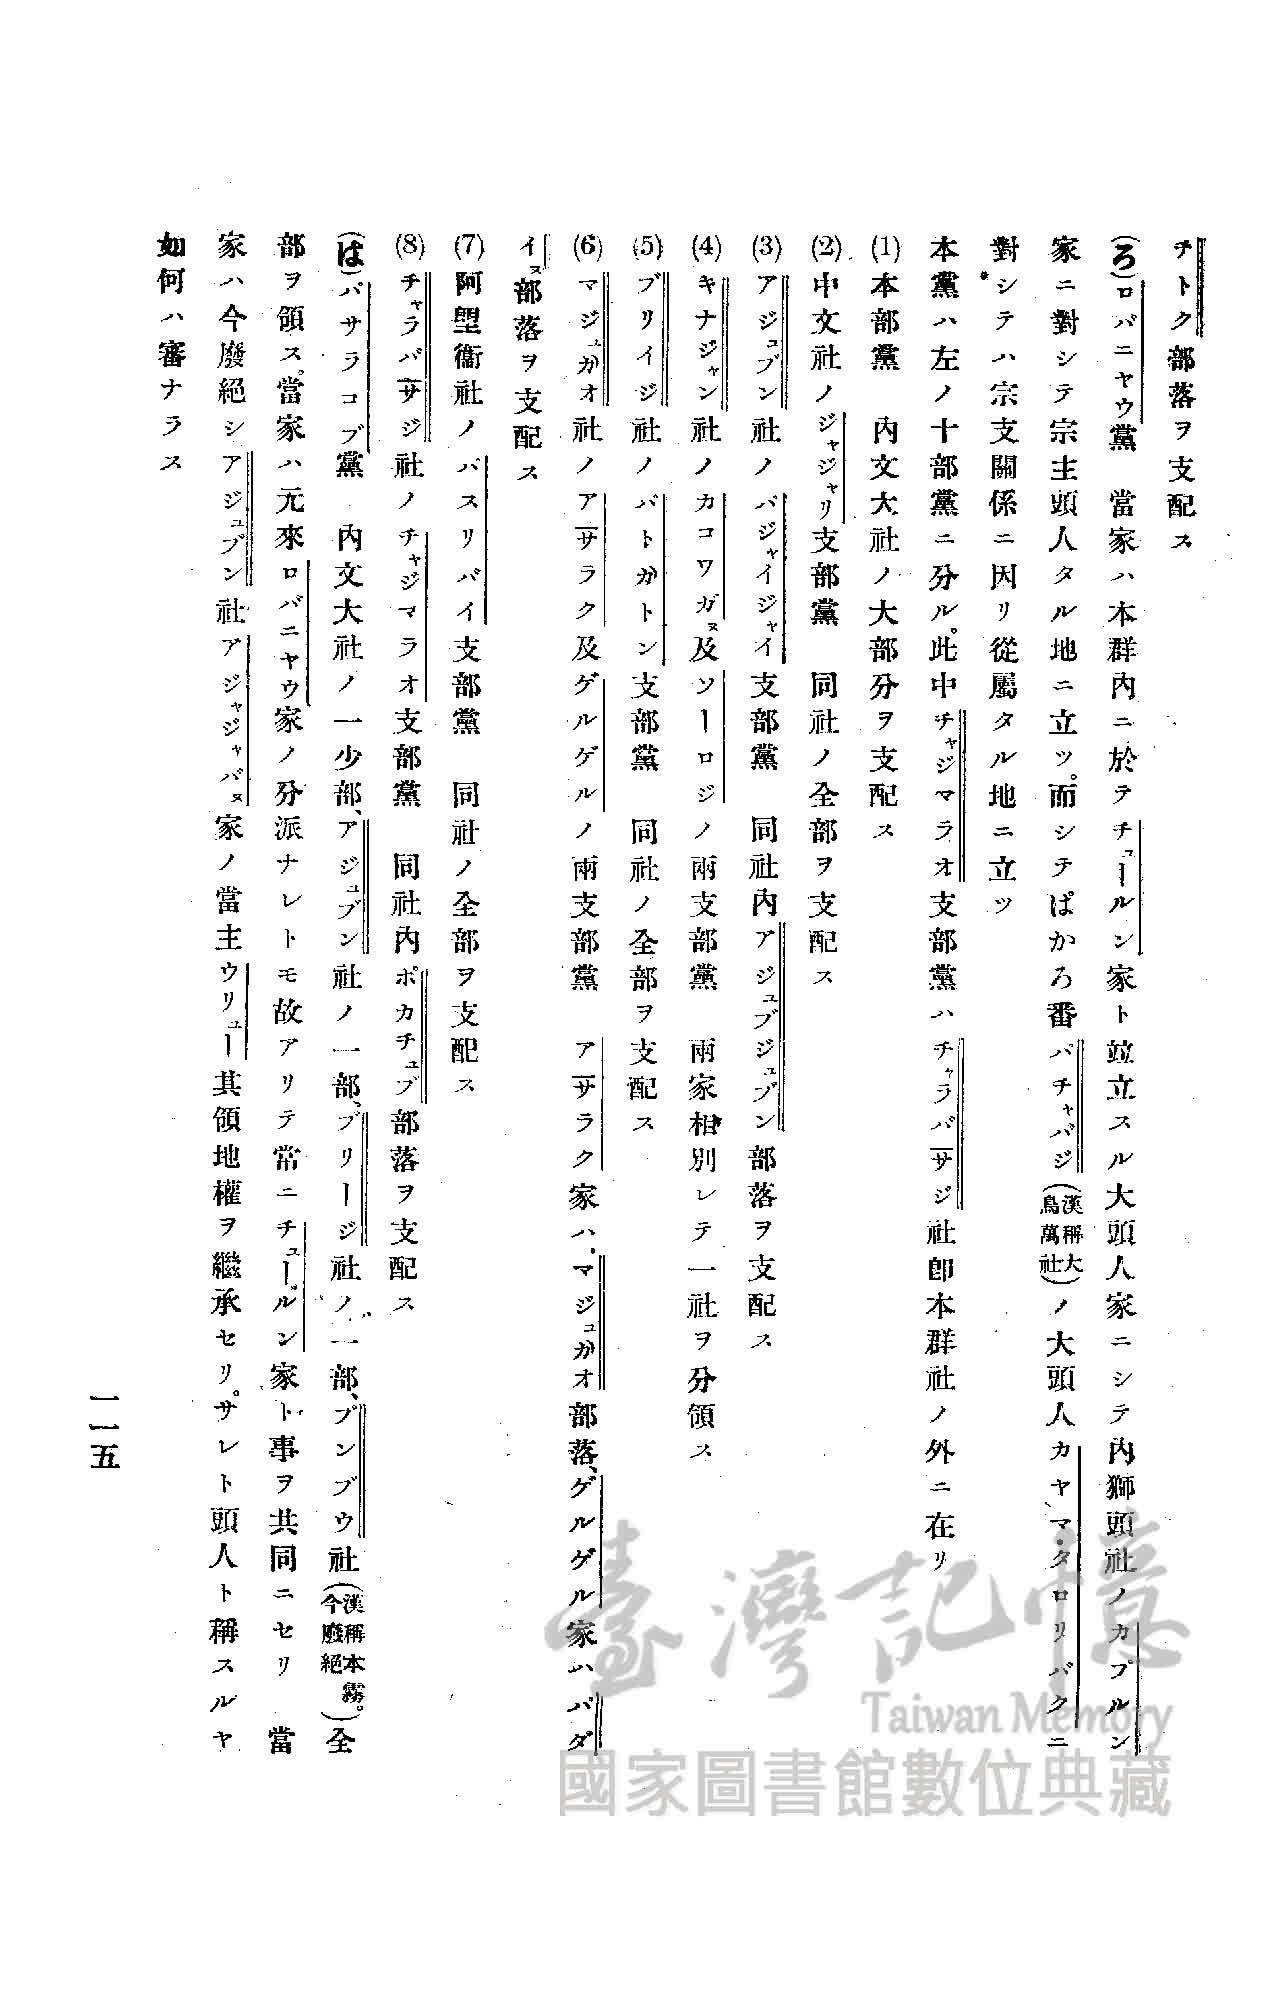 チトク部落ヲ支配ス
(ろ)ロバニヤウ黨　當家ハ本群內ニ於テチュールン家ト竝立スル大頭人家ニシテ內獅頭社ノカプルン
家ニ對シテ宗主頭人タル地ニ立ツ。而シテぱかろ番バチャバジ(漢稱大鳥萬社)ノ大頭人カヤマ・タロリバクニ
對シテハ宗支關係ニ因リ從屬タル地ニ立ツ
本黨ハ左ノ十部黨ニ分ル。此中チャジマラオ支部黨ハチャラバサジ社卽本群社ノ外ニ在リ
(1)本部黨　內文大社ノ大部分ヲ支配ス
(2)中文社ノジャジャリ支部黨　同社ノ全部ヲ支配ス
(3)アジュブン社ノバジャイジャイ支部黨　同社內アジュブジュブン部落ヲ支配ス
(4)キナジャン社ノカコワガヌ及ソーロジノ兩支部黨　兩家相別レテ一社ヲ分領ス
(5)ブリイジ社ノバトカトン支部黨　同社ノ全部ヲ支配ス
(6)マジュカオ社ノアサラク及ゲルゲルノ兩支部黨　アサラク家ハ、マジュカオ部落、ゲルゲル家ハバダ
イヌ部落ヲ支配ス
(7)阿塱衞社ノバスリバイ支部黨　同社ノ全部ヲ支配ス
(8)チャラバサジ社ノチャジマラオ支部黨　同社內ポカチュブ部落ヲ支配ス
(は)バサラコブ黨　內文大社ノ一少部、アジュブン社ノ一部、ブリージ社ノ一部、ブンブウ社(漢稱本霧。今廢絕)全
部ヲ領ス。當家ハ元來ロバニヤウ家ノ分派ナレトモ故アリテ常ニチュールン家ト事ヲ共同ニセリ　當
家ハ今廢絕シアジュブン社アジャジャバヌ家ノ當主ウリュー其領地權ヲ繼承セリ。サレト頭人ト稱スルヤ
如何ハ審ナラス
一一五
臺灣記憶
Taiwan Memory
國家圖書館數位典藏